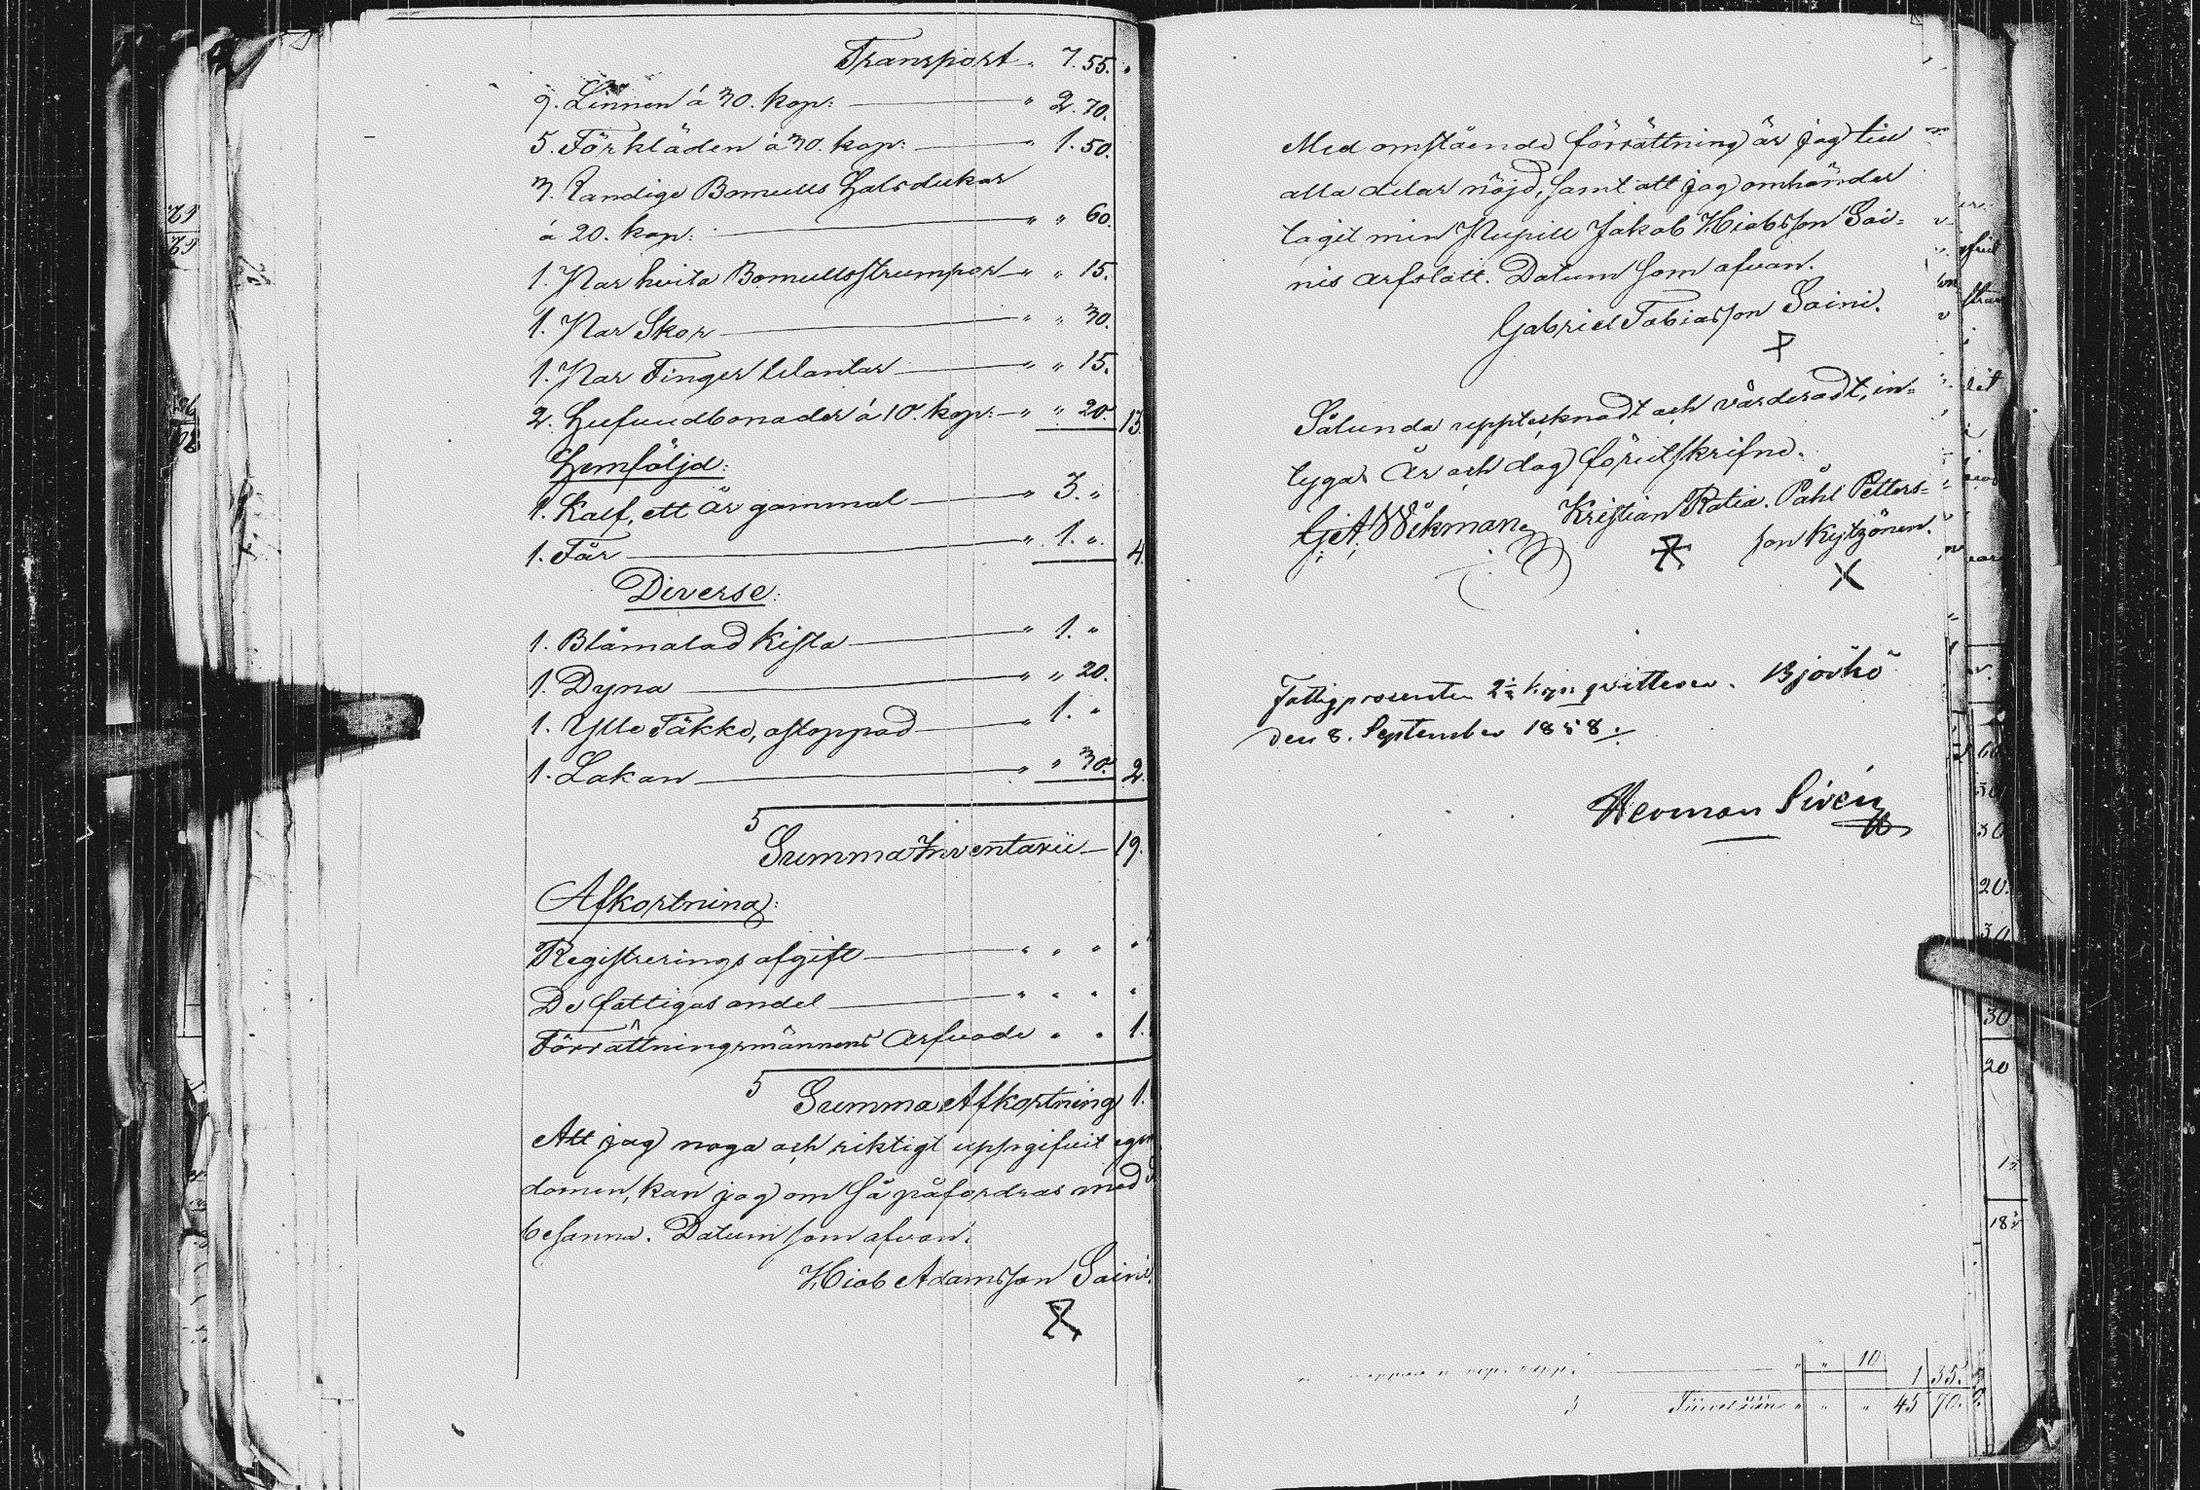 Transport " 7.55.
9. Linnen á 30. kop: " 2.70.
5. Förkläden á 30. kop: " 1.50.
3. Randige Bomulls Halsdukar
á 20. kop: " " 60.
1. Par hvita Bomullsstrumpor " " 15.
1. Par Skor " " 30.
1. Par Finger Wantar " " 15.
2. Hufvudbonader á 10. kop: " " 20. 13.
Hemföljd:
1. Kalf, ett År gammal " 3. "
1. Får " 1. " 4.
Diverse:
1. Blåmalad Kista " 1. "
1. Dyna " " 20.
1. Ylle Täkke, ostoppad " 1. "
1. Lakan " " 30. 2.
Summa Inventarii 19.
Afkortning:
Registrerings afgift " " " "
De fattigas andel " " " "
Förrättningsmännens Arfvode " " 1.
Summa Afkortning 1.
Att jag noga och riktigt uppgifvit egen
domen, kan jag om så påfordras med
besanna. Datum som ofvan.
Hiob Adamsson Saini.
Med omstående förrättning är jag till
alla delar nöjd, samt att jag omhänder
tagit min Pupill Jakob Hiobsson Sai=
nis arfslott. Datum som ofvan.
Gabriel Tobiasson Saini.
Sålunda upptecknadt och värderadt, in=
tygar År och dag förutskrifne.
G: A: Wikman. Kristian Ratia. Påhl Petters=
son Kytzönen.
Fattigprocenten 2½ kop qvitteras. Björkö
den 8. September 1858.
Herman Sirén
" " 10
1 35.
" " " 45 70.